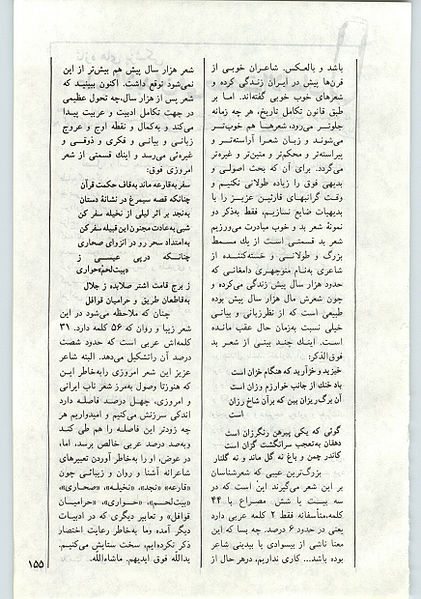 باشد و بالعکس. شاعران خوبی از
قرن‌ها پیش در ایران زندگی کرده و
شعرهای خوب خوبی گفته‌اند. اما بر
طبق قانون تکامل تاریخ، هر چه زمانه
جلوتر می‌رود، شعرها هم خوب‌تر
می‌شوند و زبان شعرا آراسته‌تر و
پیراسته‌تر و محکم‌تر و متین‌تر و غیره‌تر
می‌گردد. برای آن که بحث اصولی و
بدیهی فوق را زیاده طولانی نکنیم و
وقت گرانبهای قارئین عزیز را با
بدیهیات ضایع نسازیم، فقط به‌ذکر دو
نمونهٔ شعر بد و خوب مبادرت می‌ورزیم
شعر بد قسمتی است از یک مسمط
بزرگ و طولانی و خسته‌کننده از
شاعری به‌نام منوچهری دامغانی که
حدود هزار سال پیش زندگی می‌کرده و
چون شعرش مال هزار سال پیش بوده
طبیعی است که از نظر زبانی و بیانی
خیلی نسبت به‌زمان حال عقب مانده
است. اینك چند بیتی از شعر بد
فوق‌الذکر:
خیزید و خزآرید که هنگام خزان است
باد خنك از جانب خوارزم وزان است
آن برگ‌ریزان بین که برآن شاخ رزان
است
گوئی که یکی پیرهن رنگرزان است
دهقان به‌تعجب سرانگشت گزان است
کاندر چمن و باغ نه گل ماند و نه گلنار
بزرگ‌ترین عیبی که شعرشناسان
بر این شعر می‌گیرند این است که در
سه بیت با شش مصراع با ۴۴
کلمه،متأسفانه فقط ۲ کلمه عربی دارد
یعنی در حدود ۶ درصد. چه بسا که این
معنا ناشی از بیسوادی یا بیدینی شاعر
بوده باشد... کاری نداریم، درهر حال از
شعر هزار سال پیش هم بیش‌تر از این
نمی‌شود توقع داشت. اکنون ببینید که
شعر پس از هزار سال،چه تحول عظیمی
در جهت تکامل ادبیت و عربیت پیدا
می‌کند و به‌کمال و نقطه اوج و عروج
زبانی و بیانی و فکری و ذوقی و
غیره‌ئی می‌رسد و اینك قسمتی از شعر
امروزی فوق:
سفر به‌قارعه ماند به‌قاف حکمت قرآن
چنانکه قصه سیمرغ در نشانهٔ دستان
به‌نجد بر اثر لیلی از نخیله سفر کن
شبی به‌عادت مجنون این قبیله سفر کن
به‌امتداد سحر رو در انزوای صحاری
چنانکه درپی عیسی ز
«بیت‌لحم»حواری
ز برج قامت اشتر صلابده ز جلال
به‌قاطعان طریق و حرامیان قوافل
چنان که ملاحظه می‌شود در این
شعر زیبا و روان که ۵۶ کلمه دارد. ۳۱
کلمه‌اش عربی است که حدود شصت
درصد آن راتشکیل می‌دهد. البته شاعر
عزیز این شعر امروزی رابه‌خاطر این
که هنوزتا وصول به‌مرز شعر ناب ایرانی
و امروزی، چهل درصد فاصله دارد
اندکی سرزنش می‌کنیم و امیدواریم هر
چه زودتر این فاصله را هم طی کند
وبه‌صد درصد عربی خالص برسد، اما،
در عوض، او را به‌خاطر آوردن تعبیرهای
شاعرانه آشنا و روان و زیبائی چون
«قارعه» «نجد»، «نخیله»، «صحاری»،
«بیت‌لحم»، «حواری»، «حرامیان
قوافل» و تعابیر دیگری که در ادبیات
دیگر آمده وما به‌خاطر رعایت اختصار
ذکر نکرده‌ایم، سخت ستایش می‌کنیم.
یدالله فوق ایدیهم. ماشاءالله.
۱۵۵